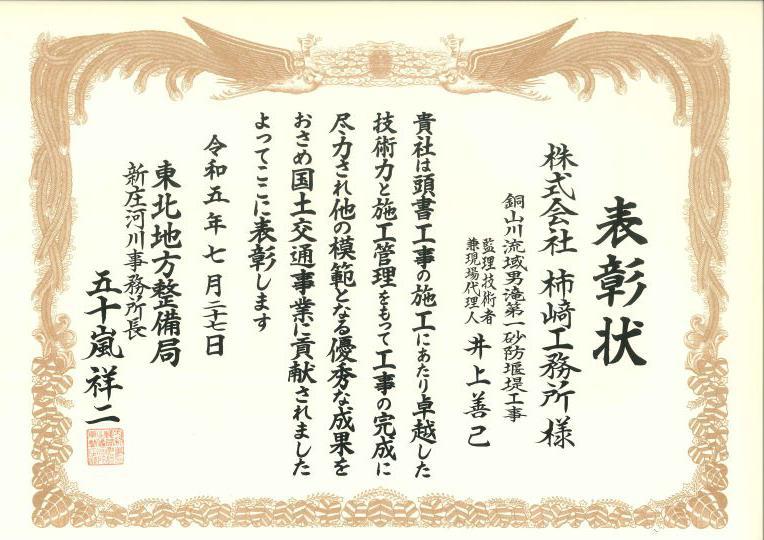 表彰状
株式会社 柿﨑工務所 様
銅山川流域男滝第一砂防堰堤工事
監理技術者
兼現場代理人
井上善己
貴社は頭書工事の施工にあたり卓越した
技術力と施工管理をもって工事の完成に
尽力され他の模範となる優秀な成果を
おさめ国土交通事業に貢献されました
よってここに表彰します
令和五年七月二十七日
東北地方整備局
新庄河川事務所長
五十嵐祥二